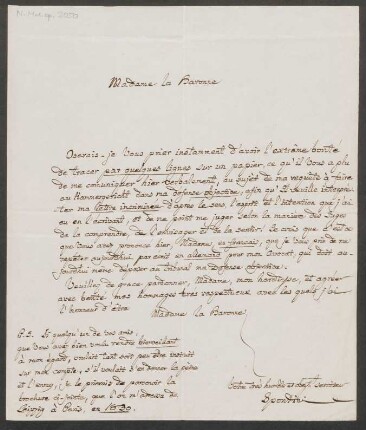 Madame la Baronne
Oserais-je Vous prier instamment d'avoir l'extrême bonté
de tracer par quelques lignes sur un papier, ce qu'il Vous a plu
de me comuniquer hier verbalement, au sujet de ma requête à faire
au Kammergericht dans ma défense objective, afin qu'il veuille interpré-
ter ma lettre incriminée d'après le sens, l'esprit et l'intention que j'ai
eu en l'écrivant, et de ne point me juger selon la manière des Juges
de la comprendre, de l'envisager et de la sentir. Ce mot
que Vous avez prononcé hier, Madame, en français, que je Vous prie de me
répéter aujourd'hui, par écrit en allemand pour mon Avocat, qui doit au-
jourd'hui même déposer au Tribunal ma défense objective.
Veuillez de grace pardonner, Madame, mon hardiesse, et agréer
avec bonté mes hommages très respectueux avec les quels j'ai
l'honneur d'être
Madame la Baronne
P.S. Si quelqu'un de vos amis,
que Vous avez bien voulu rendre bienveillant
à mon égard, voulait tant soit peu être instruit
sur mon compte, s'il voulait s'en donner la peine
et l'ennui, je le prierais de parcourir la
brochure ci-jointe, que l'on m'adressa de
Leipzig à Paris, en 1839.
Votre très humble et obéist. serviteur
Spontini